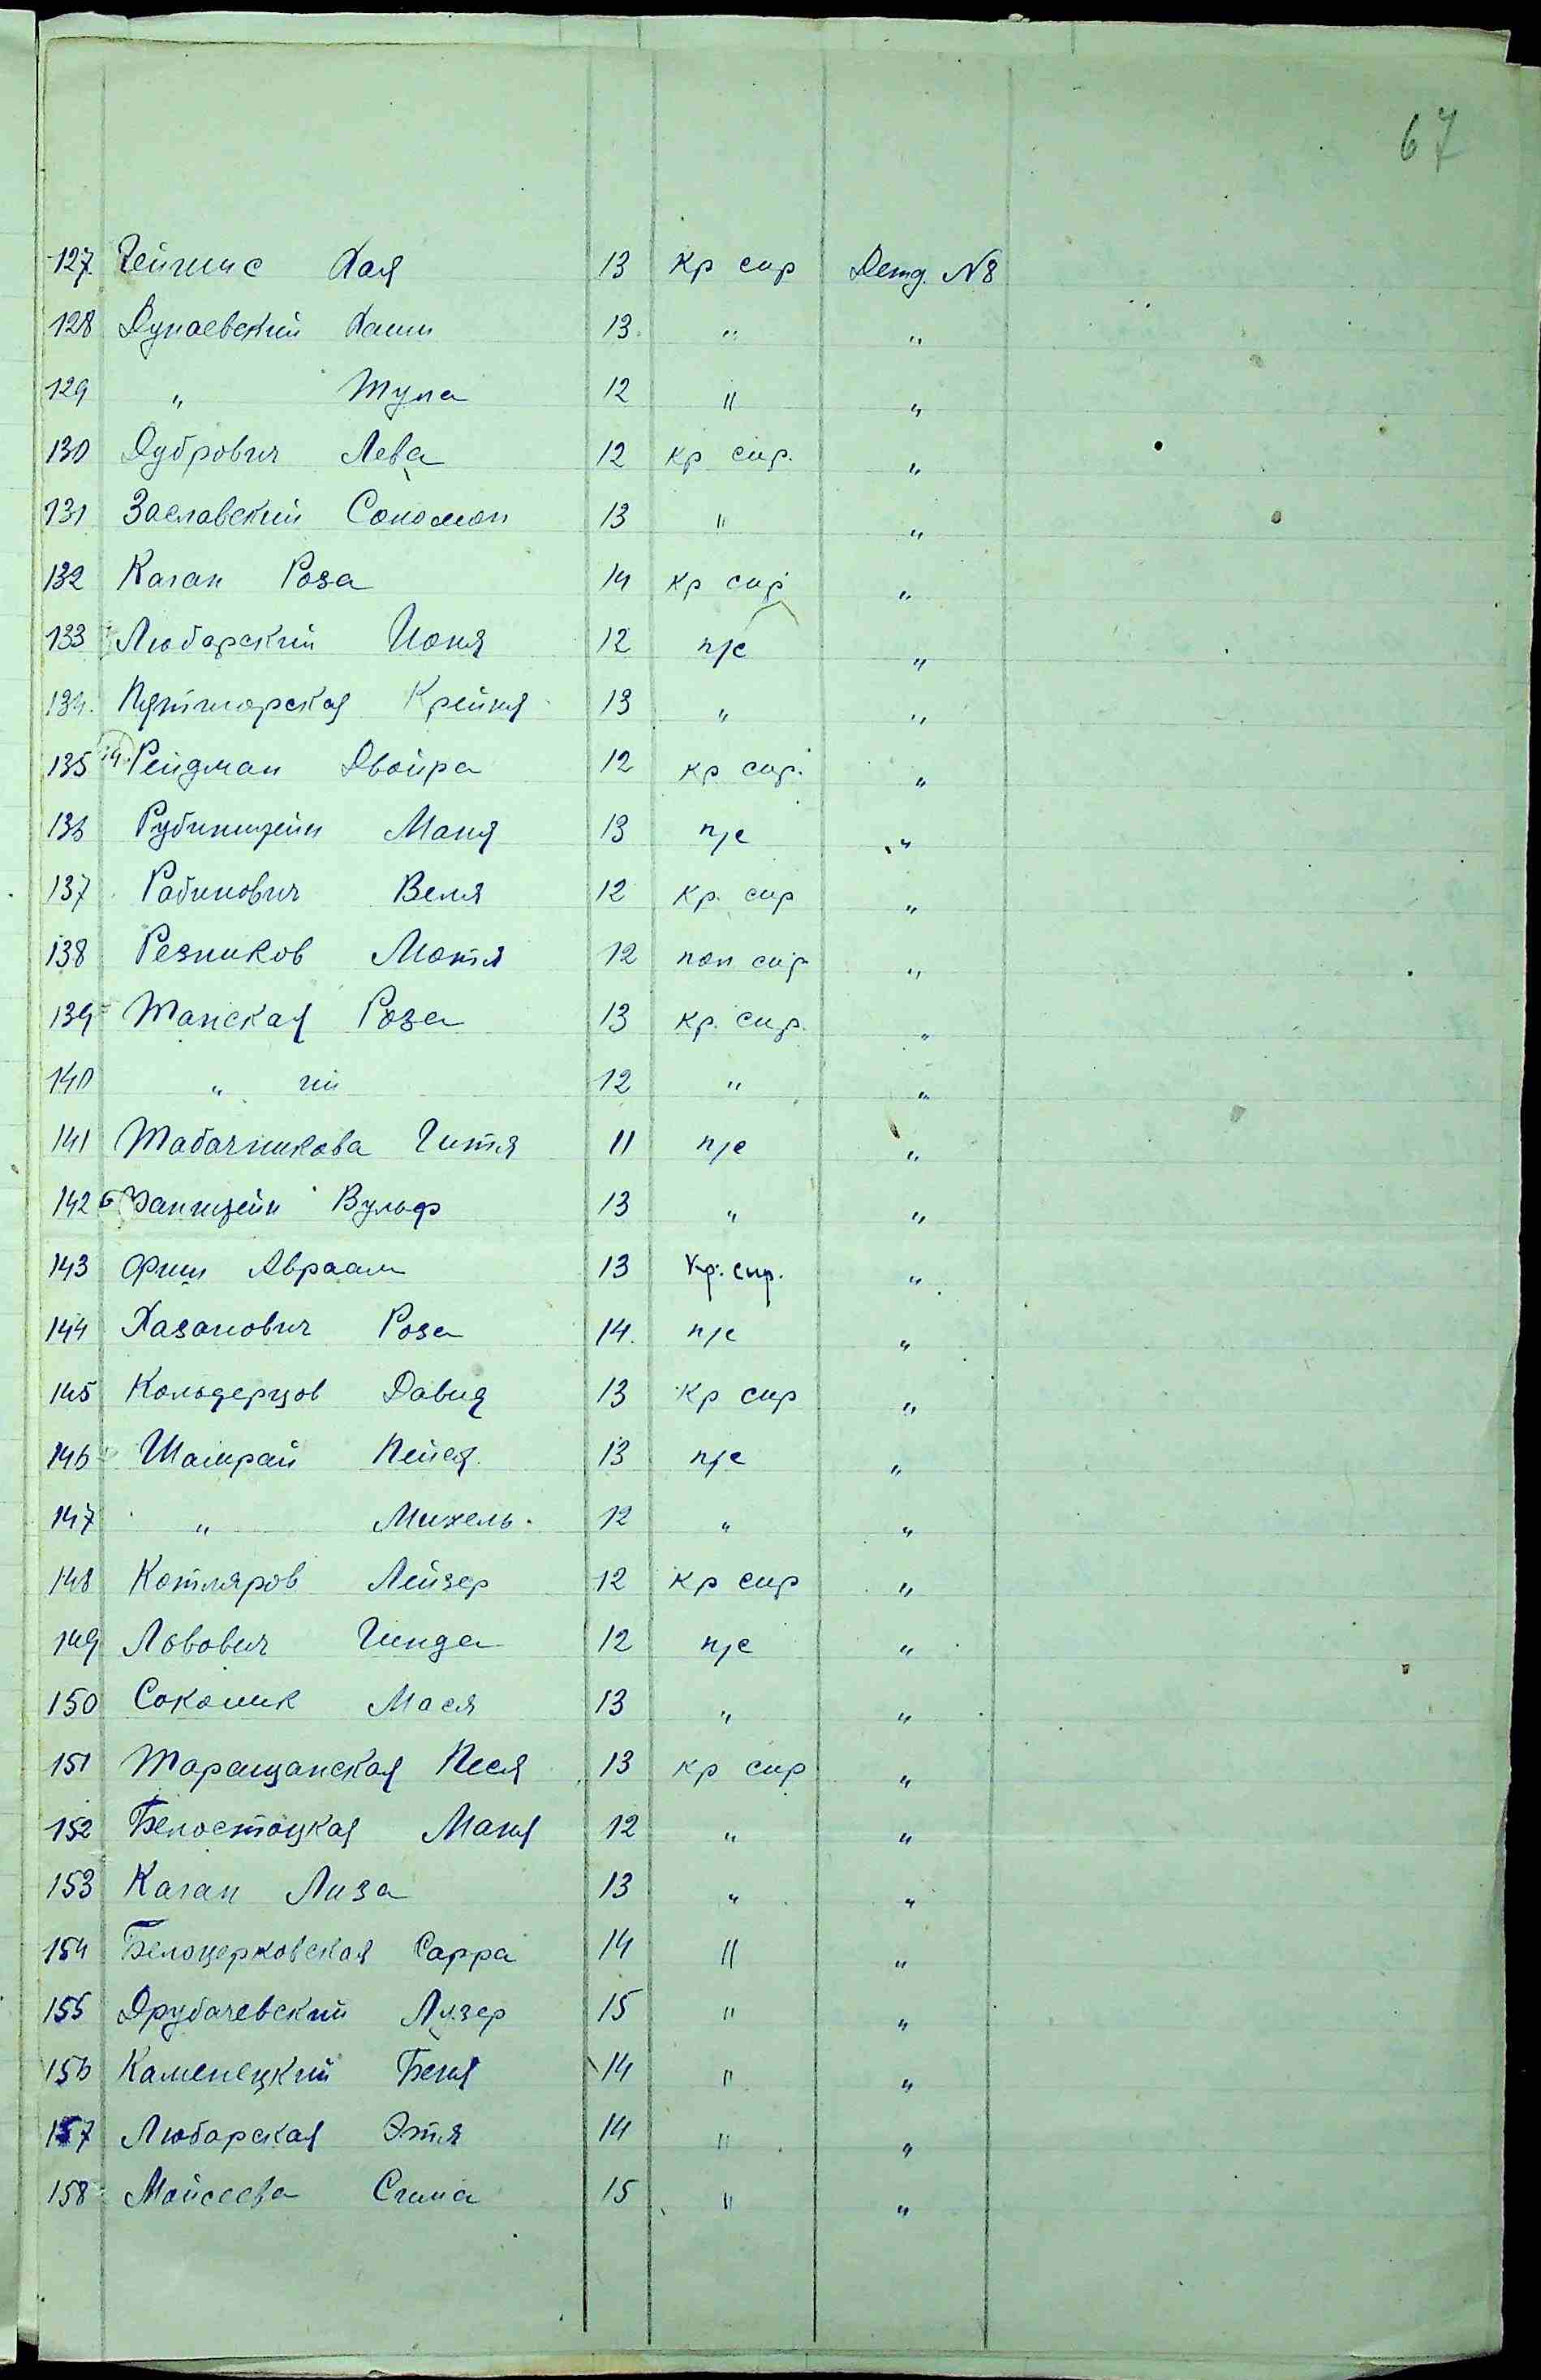 67
127 Гейгшис Хая 13 кр сир Детд. №8
128 Дунаевский Хаим 13 " "
129 " Шула 12 " "
130 Дубрович Лева 12 кр сир. "
131 Заславский Соломон 13 " "
132 Каган Роза 14 кр сир "
133 Любарский Йоня 12 п/с "
134. Пятигорская Крейня 13 " "
135 Рейдман Двойра 12 кр сир. "
136 Рубинштейн Маня 13 п/с "
137 Рабинович Веля 12 кр. сир "
138 Резников Мотя 12 пол сир "
139 Тайская Роза 13 кр. сир. "
140 " 12 " "
141 Табачникова Гитя 11 п/с "
142 Вульф 13 " "
143 Фиш Авраам 13 кр. сир. "
144 Хазанович Роза 14. п/с "
145 Кольдерцов Давид 13 кр сир "
146 Шамрай Пейся 13 п/с "
147 " Михель. 12 " "
148 Котляров Лейзер 12 кр сир "
149 Львович Гинда 12 п/с "
150 Соколик Мася 13 " "
151 Таращанская Песя 13 кр сир "
152 Белостоцкая Маня 12 " "
153 Каган Лиза 13 " "
154 Белоцерковская Сарра 14 " "
155 Друбачевский Лузер 15 " "
156 Каменецкий Беня 14 " "
157 Любарская Этя 14 " "
158 Мойсеева Сима 15 " "